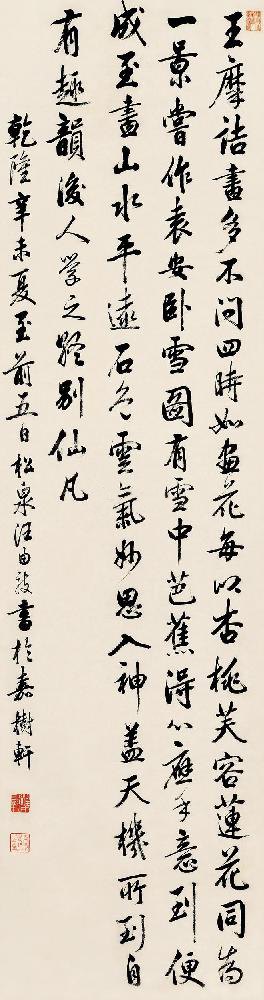 王摩詰畫多不問四時如畫花每以杏桃芙容蓮花同為
一景嘗作袁安卧雪圖有雪中芭蕉得心應手意到便
成至畫山水平遠石色雲氣妙思入神蓋天機所到自
有趣韻後人學之別仙凡
乾隆辛未夏至前五日松泉汪由敦書於嘉樹軒